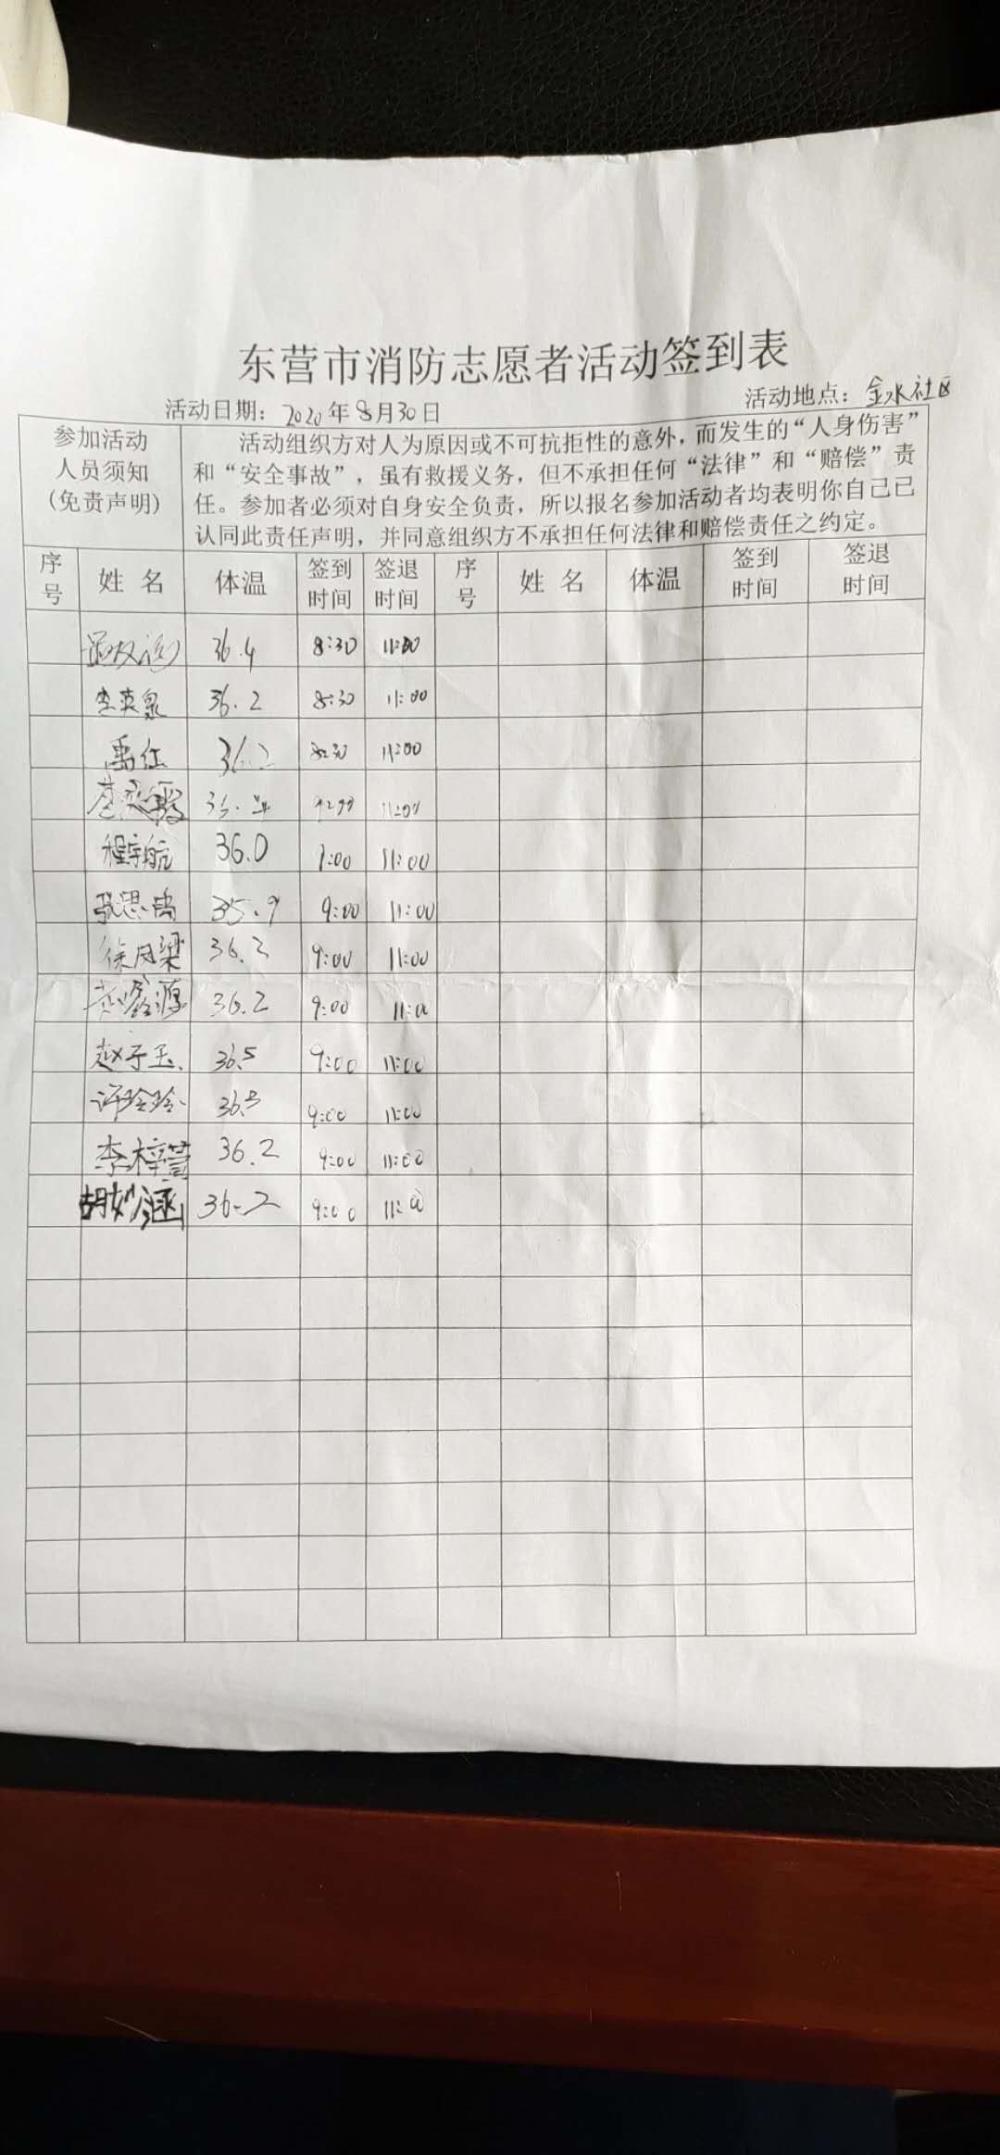 东营市消防志愿者活动签到表
活动日期：2020年8月30日 活动地点：金水社区
参加活动
人员须知
(免责声明)
活动组织方对人为原因或不可抗拒性的意外，而发生的“人身伤害”
和“安全事故”，虽有救援义务，但不承担任何“法律”和“赔偿”责
任。参加者必须对自身安全负责，所以报名参加活动者均表明你自己已
认同此责任声明，并同意组织方不承担任何法律和赔偿责任之约定。
序号 姓名 体温 签到时间 签退时间 序号 姓名 体温 签到时间 签退时间
36.4 8:30 11:00
李英泉 36.2 8:30 11:00
禹红 36.2 8:30 11:00
程宇航 36.0 9:00 11:00
张思雨 35.9 9:00 11:00
徐凤梁 36.2 9:00 11:00
36.2 9:00 11:00
赵子玉 36.5 9:00 11:00
许玲玲 36.5 9:00 11:00
李梓萱 36.2 9:00 11:00
胡妙涵 36.2 9:00 11:00